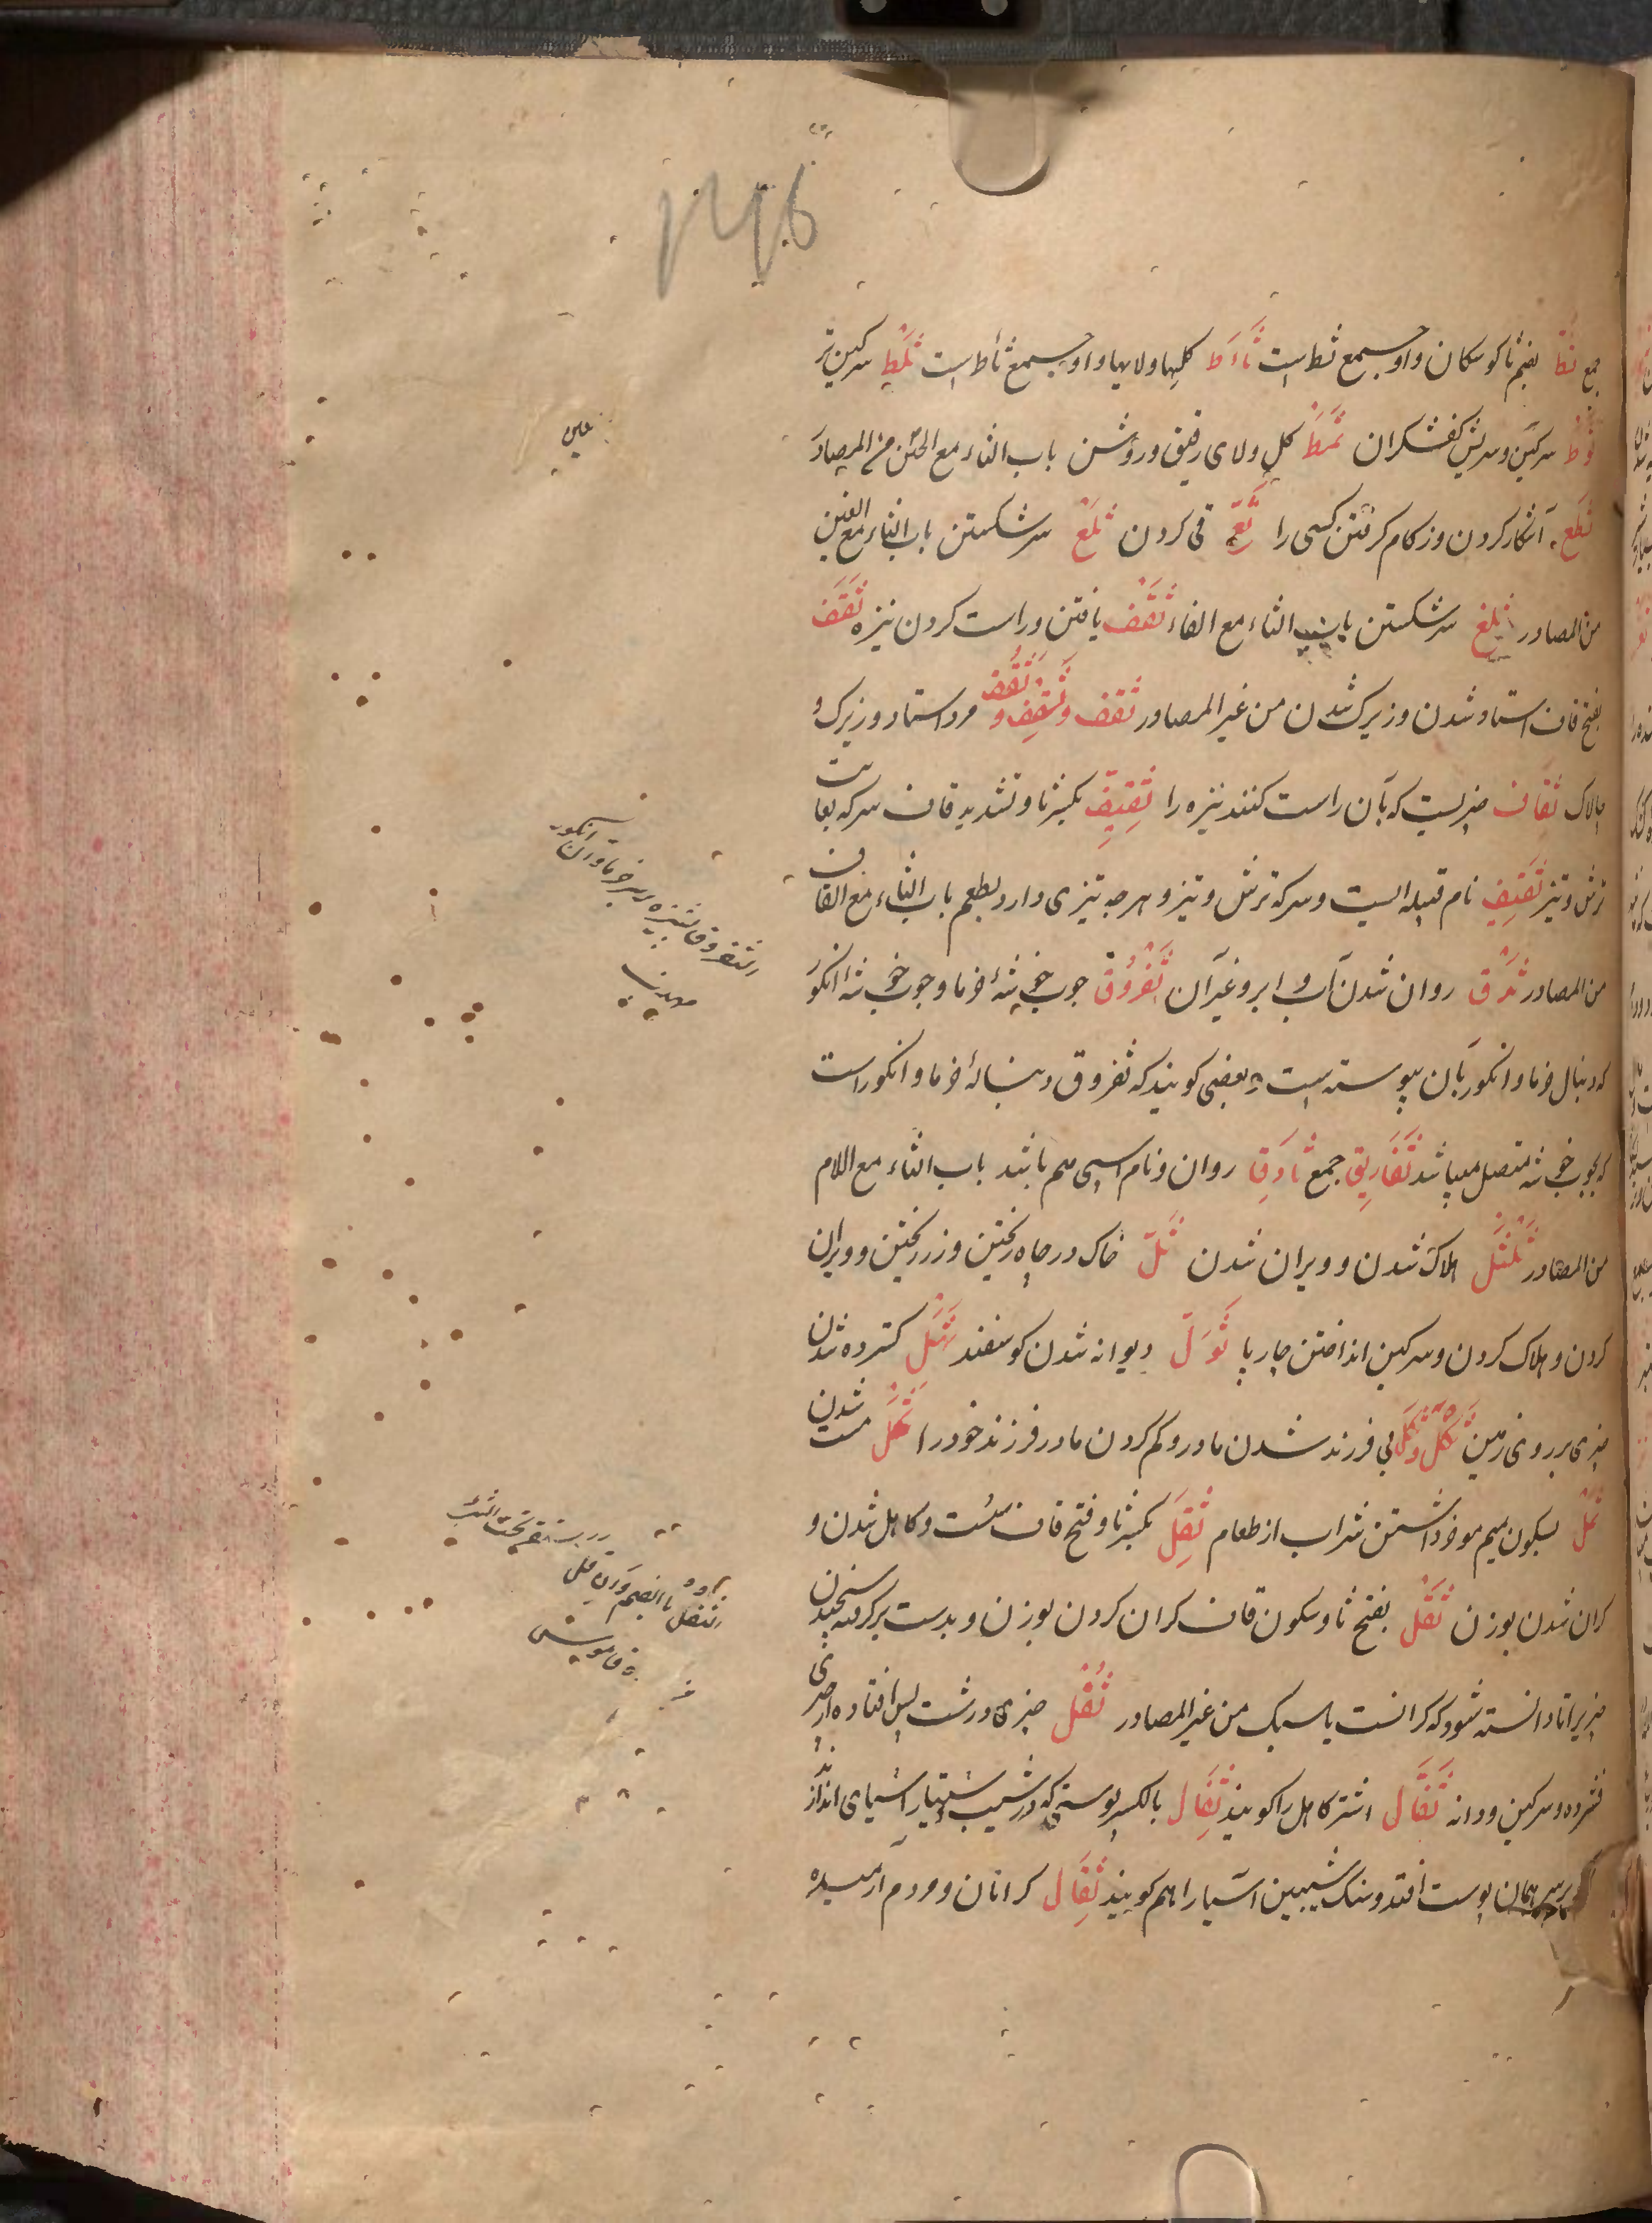 جمع ثُطّ بضم ثا کوسکان و او جمع ثط است ثَأَط کلیها و لایها و او جمع ثأط است ثَلْط سرکین تر
ثَوْط سرکین و سریش کفشکران ثَمْط کل و لای رقیق و روشن باب الثاء مع العین من المصادر
ثَطْع آشکار کردن و زکام کرفتن کسی را ثَعّ قی کردن ثَلْع سر شکستن باب الثاء مع الغین
من المصادر ثَلْغ سر شکستن باب الثاء مع الفاء ثَقْف یافتن و راست کردن نیزه ثَقَف
بفتح قاف استاد شدن و زیرک شدن من غیر المصادر ثَقْف و ثَقِف و ثَقُف مرد استاد و زیرک و
چالاک ثِقَاف چیزیست که بآن راست کنند نیزه را ثِقِّیف بکسر ثا و تشدید قاف سرکه بغایت
ترش و تیز ثَقِیف نام قبیله ایست و سرکه ترش و تیز و هر چه تیزی دارد بطعم باب الثاء مع القاف
من المصادر ثَرْق روان شدن آب و ابر و غیر آن ثُفْرُوق چوب خوشهٔ خرما و چوب خوشهٔ انکور
که دنبال خرما و انکور بآن پیوسته است و بعضی کویند که ثفروق دنبالهٔ خرما و انکور است
که بچوب خوشه متصل میباشد ثَفَارِیق جمع ثَادِق روان و نام اسپی هم باشد باب الثاء مع اللام
من المصادر ثَلَل هلاک شدن و ویران شدن ثَلّ خاک در چاه ریختن و زر ریختن و ویران
کردن و هلاک کردن و سرکین انداختن چارپا ثَوَل دیوانه شدن کوسفند ثَهَل کسترده شدن
چیزی بر روی زمین ثُکْل و ثَکَل بی فرزند شدن مادر و کم کردن مادر فرزند خود را ثَمَل مست شدن
ثَمْل بسکون میم موخر داشتن شراب از طعام ثِقَل بکسر ثا و فتح قاف سست و کاهل شدن و
کران شدن بوزن ثَقْل بفتح ثا و سکون قاف کران کردن بوزن و بدست برکرفته سنجیدن
چیزیرا تا دانسته شود که کرانست یا سبک من غیر المصادر ثُفْل چیزی درشت پس افتاده از چیزی
فشرده و سرکین و دانه ثَفَال اشتر کاهل را کویند ثِفَال بالکسر پوستی که در شیب آسیا
بر همان پوست افتد و سنک شیبین آسیا را هم کویند ثِقَال کرانان و مردم آرمیده
عین
الثفروق
انکور
مهذب
الثفل بالضم
قاموس